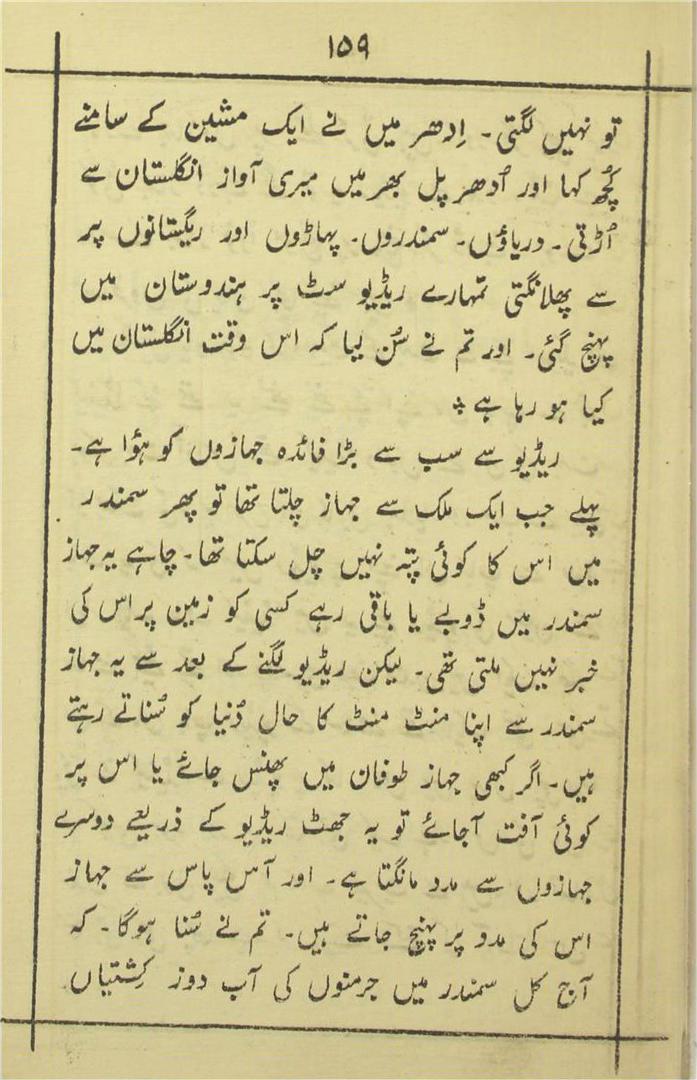 ۱۵۹
تو نہیں لگتی۔ اِدھر میں نے ایک مشین کے سامنے
کُچھ کہا اور اُدھر پل بھر میں میری آواز انگلستان سے
اُڑتی۔ دریاؤں۔ سمندروں۔ پہاڑوں اور ریگستانوں پر
سے پھلانگتی تمہارے ریڈیو سٹ پر ہندوستان میں
پہنچ گئی۔ اور تم نے سُن لیا کہ اس وقت انگلستان میں
کیا ہو رہا ہے ؞
ریڈیو سے سب سے بڑا فائدہ جہازوں کو ہؤا ہے۔
پہلے جب ایک ملک سے جہاز چلتا تھا تو پھر سمندر
میں اس کا کوئی پتہ نہیں چل سکتا تھا۔ چاہے یہ جہاز
سمندر میں ڈوبے یا باقی رہے کسی کو زمین پر اس کی
خبر نہیں ملتی تھی۔ لیکن ریڈیو لگنے کے بعد سے یہ جہاز
سمندر سے اپنا منٹ منٹ کا حال دُنیا کو سُناتے رہتے
ہیں۔ اگر کبھی جہاز طوفان میں پھنس جائے یا اس پر
کوئی آفت آجائے تو یہ جھٹ ریڈیو کے ذریعے دوسرے
جہازوں سے مدد مانگتا ہے۔ اور آس پاس سے جہاز
اس کی مدد پر پہنچ جاتے ہیں۔ تم نے سُنا ہوگا۔ کہ
آج کل سمندر میں جرمنوں کی آب دوز کِشتیاں